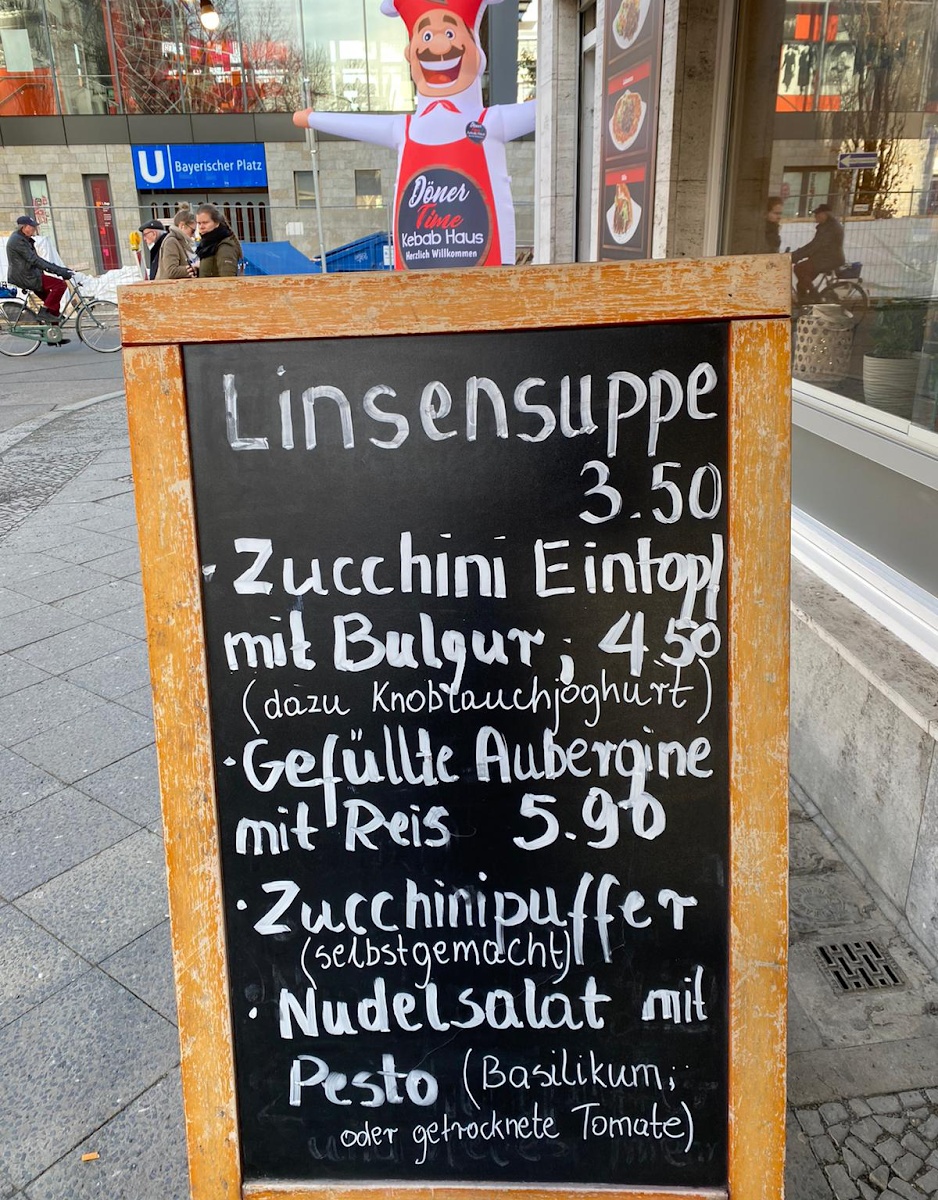 U Bayerischer Platz
Döner
Time
Kebab Haus
Herzlich Willkommen
Linsensuppe
3.50
- Zucchini Eintopf
mit Bulgur; 4.50
(dazu Knoblauchjoghurt)
· Gefüllte Aubergine
mit Reis 5.90
· Zucchinipuffer
(selbstgemacht)
· Nudelsalat mit
Pesto (Basilikum;
oder getrocknete Tomate)